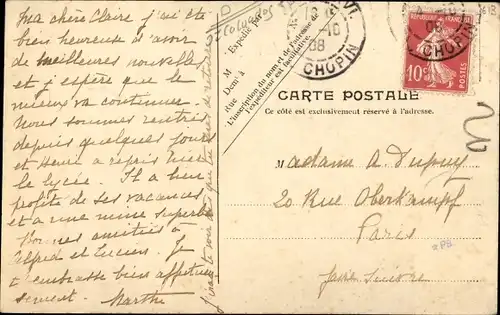 Ma chère Claire j'ai été
bien heureuse d'avoir
de meilleures nouvelles
et j'espère que le
mieux va continuer.
Nous sommes rentrés
depuis quelques jours
et Henri a repris hier
le lycée. Il a bien
profité de ses vacances
et a une mine superbe
Bonnes amitiés à
Alfred et Lucien. Je
t'embrasse bien affectueu
sement. Marthe
J'irai te voir dès que tu seras de retour
M
Expédié par
Demt à
Rue
L'inscription du nom et de l'adresse de
l'expéditeur est facultative.
08
CHOPIN
CHOPIN
10c
POSTES
CARTE POSTALE
Ce côté est exclusivement réservé à l'adresse.
Madame A. Dupuy
20 Rue Oberkampf
Paris
faire suivre